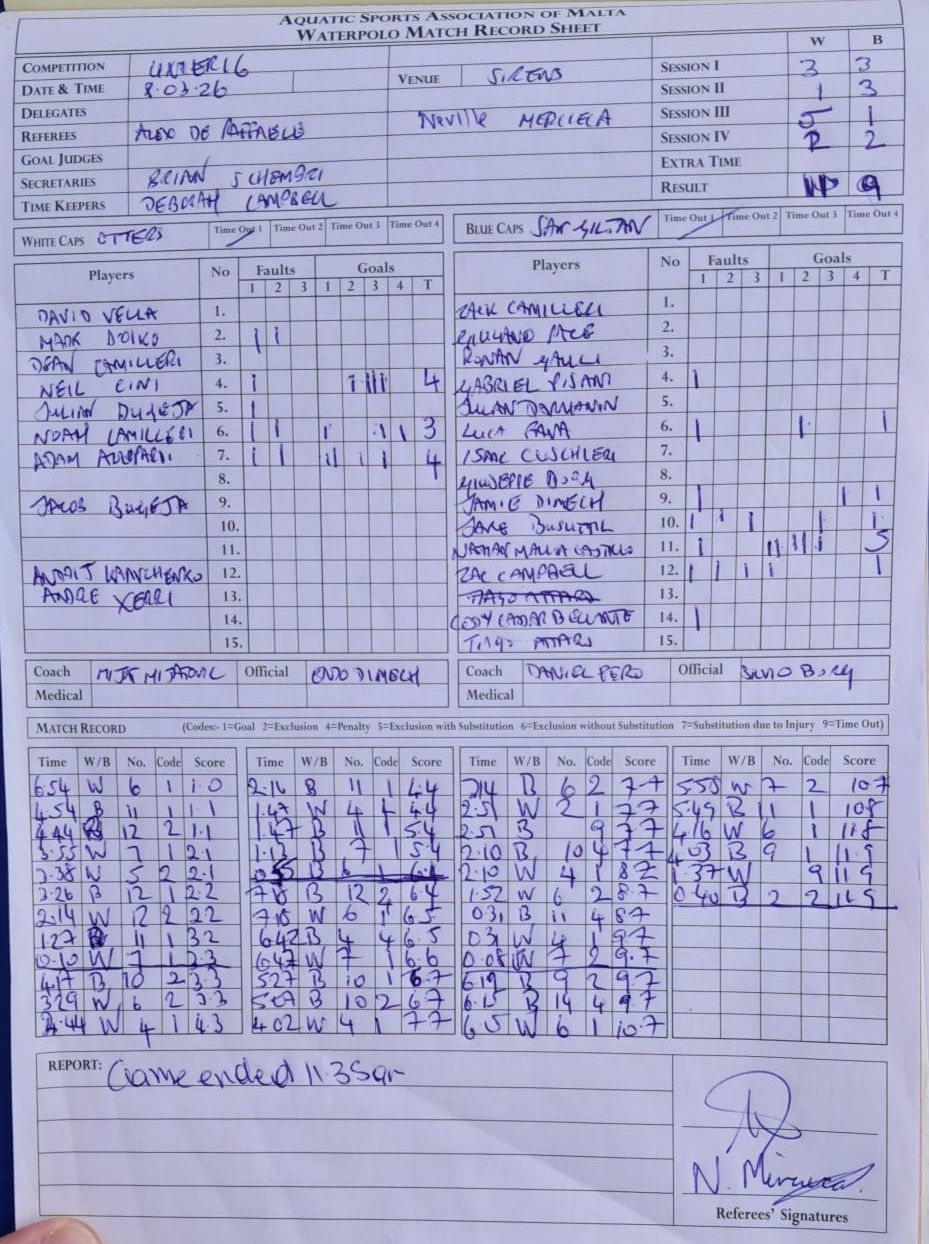 AQUATIC SPORTS ASSOCIATION OF MALTA
WATERPOLO MATCH RECORD SHEET
W B
COMPETITION UNDER 16
DATE & TIME 8.03.26
VENUE SIRENS
DELEGATES
REFEREES ALEX DE RAFFAELE Neville MERCIECA
GOAL JUDGES
SECRETARIES BRIAN SCHEMBRI
TIME KEEPERS DEBORAH CAMPBELL
SESSION I 3 3
SESSION II 1 3
SESSION III 5 1
SESSION IV 2 2
EXTRA TIME
RESULT 9
WHITE CAPS OTTERS Time Out 1 Time Out 2 Time Out 3 Time Out 4
Players No Faults Goals
1 2 3 1 2 3 4 T
DAVID VELLA 1.
MARK 2. | |
DEAN CAMILLERI 3.
NEIL CINI 4. | | | | | 4
JULIAN BUGEJA 5. |
NOAH CAMILLERI 6. | | | | | 3
ADAM AZZOPARDI 7. | | | | | | 4
8.
JACOB BUGEJA 9.
10.
11.
ANDRIJ KRAVCHENKO 12.
ANDRE XERRI 13.
14.
15.
Coach Official ENZO DIMECH
Medical
BLUE CAPS SAN GILJAN Time Out 1 Time Out 2 Time Out 3 Time Out 4
Players No Faults Goals
1 2 3 1 2 3 4 T
ZACK CAMILLERI 1.
PACE 2.
RONAN GAUCI 3.
GABRIEL PISANI 4. |
JULIAN DARMANIN 5.
LUCA 6. | | 1
ISAAC CUSCHIERI 7.
GIUSEPPE BORG 8.
JAMIE DIMECH 9. | | 1
JAKE BUSUTTIL 10. | | | | 1
NATHAN MALLIA CASTILLO 11. | | | | | | 5
ZAC CAMPBELL 12. | | | | 1
TIAGO ATTARD 13.
14. |
TIAGO ATTARD 15.
Coach DANIEL PERO Official SILVIO BORG
Medical
MATCH RECORD (Codes:- 1=Goal 2=Exclusion 4=Penalty 5=Exclusion with Substitution 6=Exclusion without Substitution 7=Substitution due to Injury 9=Time Out)
Time W/B No. Code Score
6.54 W 6 1 1.0
4.54 B 11 1 1.1
4.44 B 12 2 1.1
3.55 W 7 1 2.1
3.38 W 5 2 2.1
3.26 B 12 1 2.2
2.14 W 12 2 2.2
1.27 B 11 1 3.2
0.10 W 7 1 3.3
4.17 B 10 2 3.3
3.29 W 6 2 3.3
W 4 1 4.3
Time W/B No. Code Score
2.16 B 11 1 4.4
1.47 W 4 4 4.4
1.47 B 11 1 5.4
1.13 B 7 1 5.4
0.55 B 6 1 6.4
7.18 B 12 2 6.4
7.18 W 6 1 6.5
6.42 B 4 4 6.5
6.42 W 7 1 6.6
5.27 B 10 1 6.7
5.09 B 10 2 6.7
4.02 W 4 1 7.7
Time W/B No. Code Score
B 6 2 7.7
2.51 W 2 1 7.7
2.51 B 9 7.7
2.10 B 10 4 7.7
2.10 W 4 1 8.7
1.52 W 6 2 8.7
0.31 B 11 4 8.7
0.31 W 4 1 9.7
0.08 W 7 2 9.7
6.19 B 9 2 9.7
6.15 B 14 4 9.7
6.15 W 6 1 10.7
Time W/B No. Code Score
5.58 W 7 2 10.7
5.49 B 11 1 10.8
4.16 W 6 1 11.8
4.03 B 9 1 11.9
1.37 W 9 11.9
0.40 B 2 2 11.9
REPORT: Game ended 11.35am
Referees' Signatures